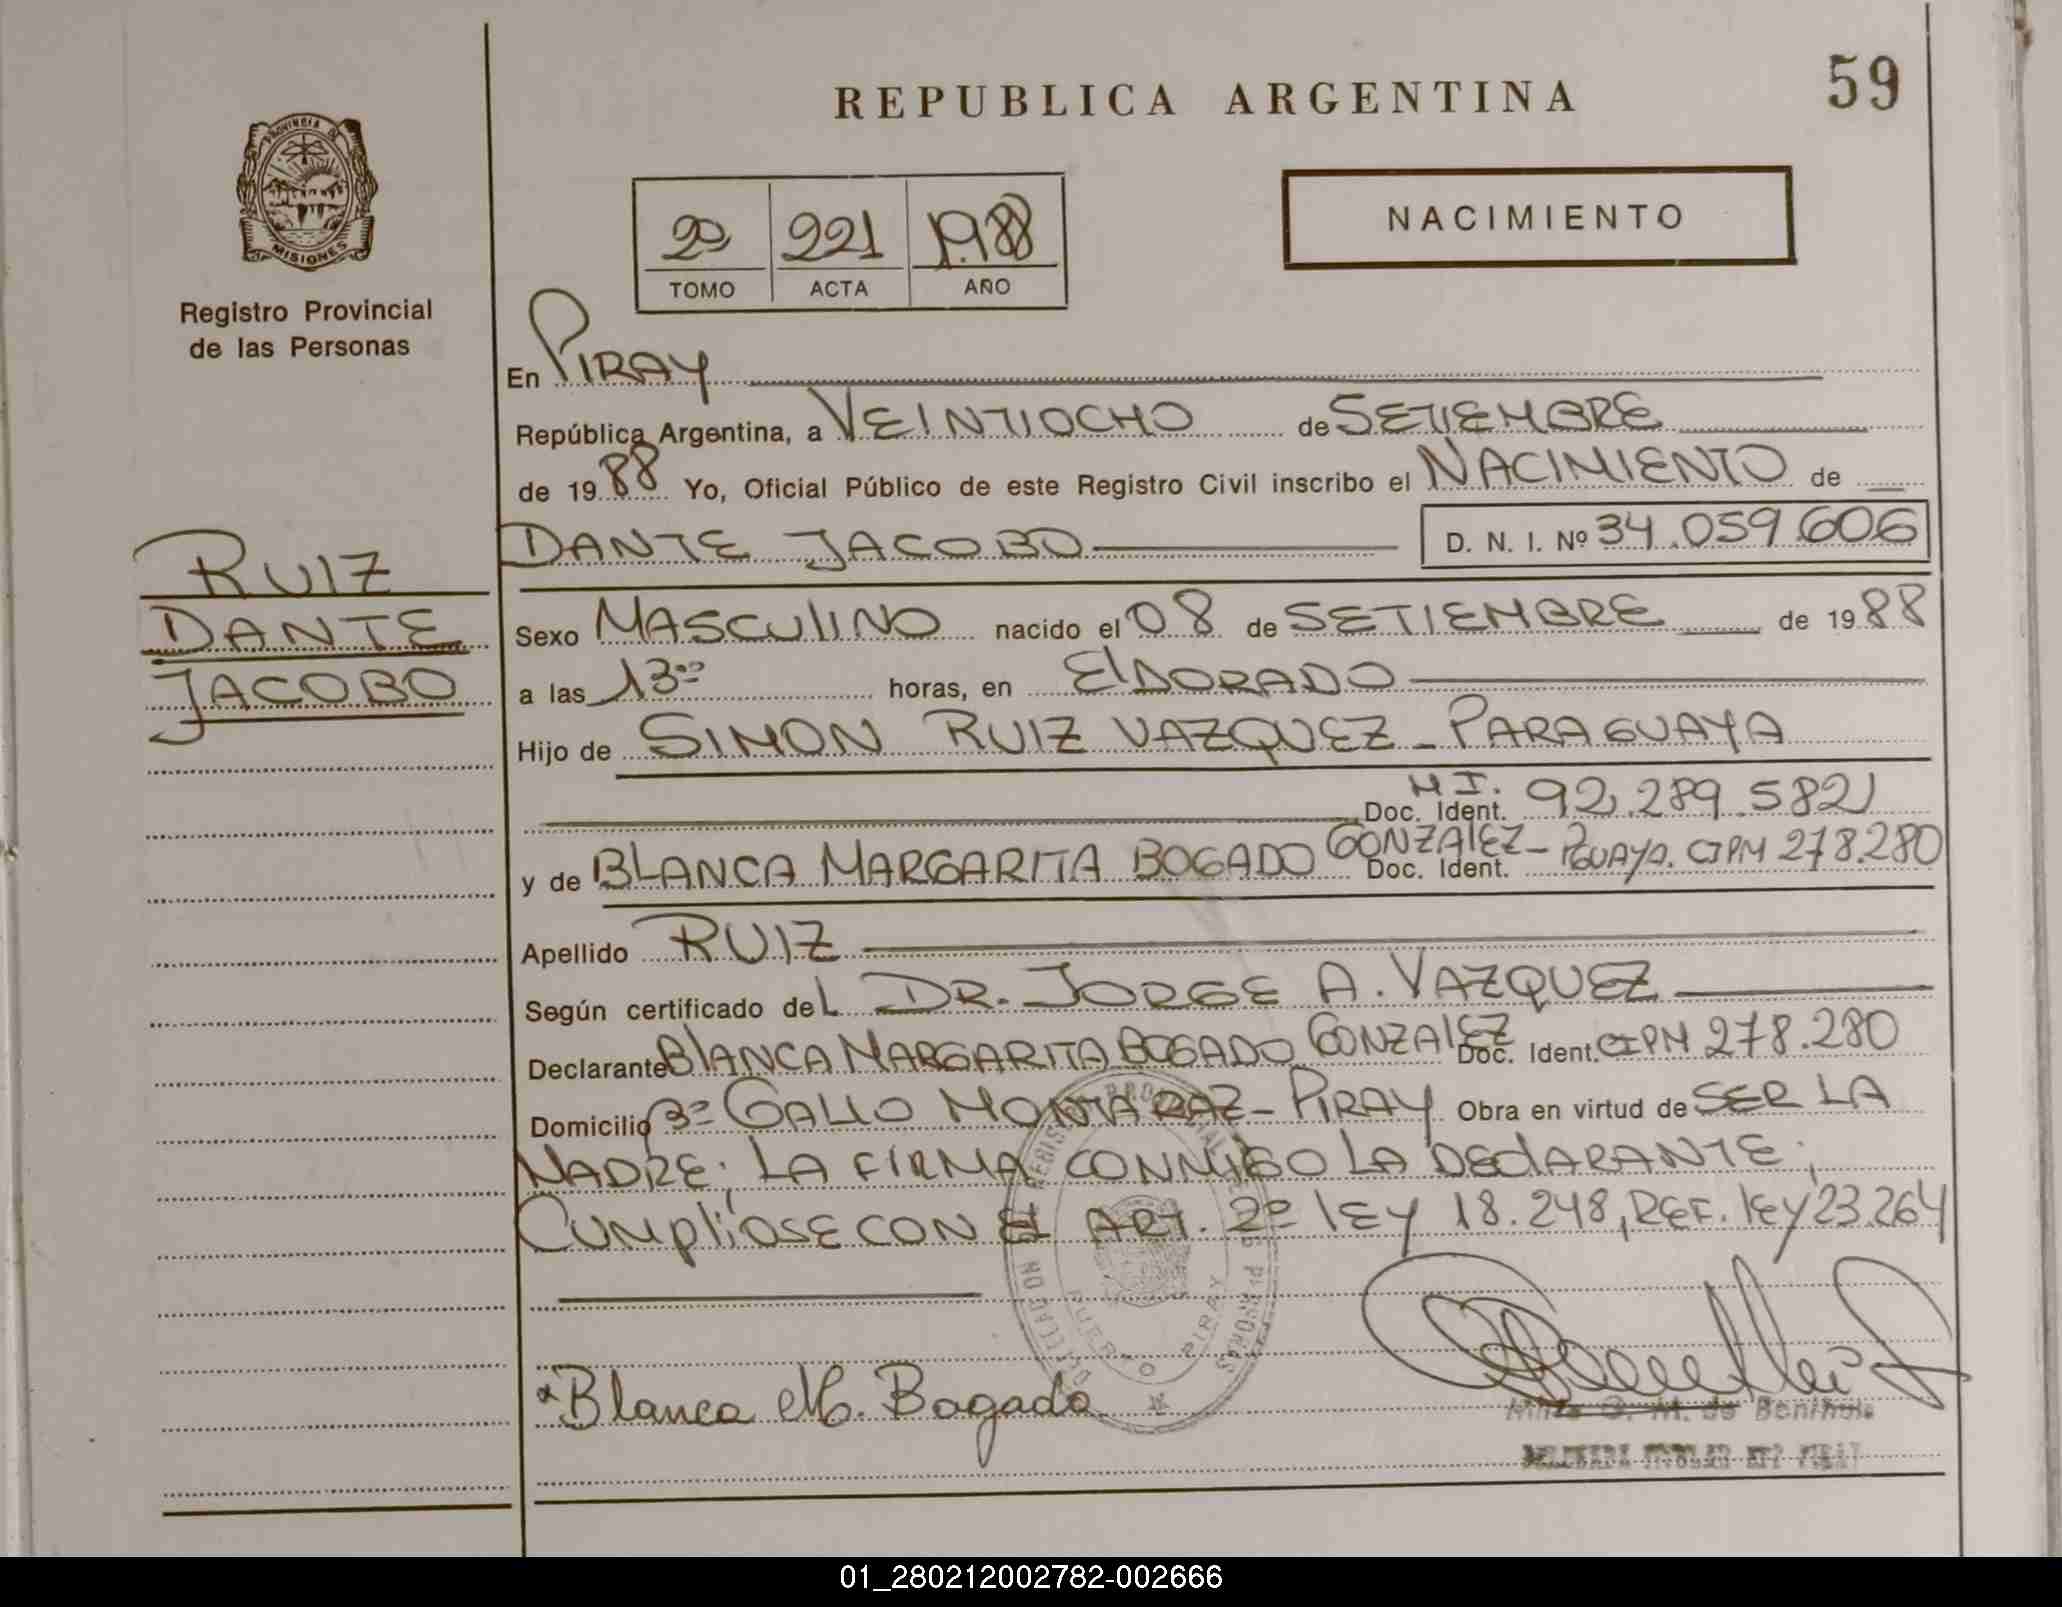 REPUBLICA ARGENTINA
59
PROVINCIA DE
MISIONES
Registro Provincial
de las Personas
2º 221 1988
TOMO ACTA AÑO
NACIMIENTO
En PIRAY
República Argentina, a VEINTIOCHO de SETIEMBRE
de 1988 Yo, Oficial Público de este Registro Civil inscribo el NACIMIENTO de
DANTE JACOBO D. N. I. Nº 34.059.606
RUIZ
DANTE
JACOBO
Sexo MASCULINO nacido el 08 de SETIEMBRE de 1988
a las 13ºº horas, en ELDORADO
Hijo de SIMON RUIZ VAZQUEZ - PARAGUAYA
Doc. Ident. M I. 92.289.582
y de BLANCA MARGARITA BOGADO GONZALEZ - PGUAYA. Doc. Ident. CIPM 278.280
Apellido RUIZ
Según certificado del DR. JORGE A. VAZQUEZ
Declarante BLANCA MARGARITA BOGADO GONZALEZ Doc. Ident. CIPM 278.280
Domicilio Bº GALLO MONTARAZ - PIRAY Obra en virtud de SER LA
MADRE; LA FIRMA CONMIGO LA DECLARANTE;
CUMPLIOSE CON EL ART. 2º LEY 18.248, REF. LEY 23.264
PUERTO PIRAY
Blanca M. Bogado
G. M. de
01_280212002782-002666